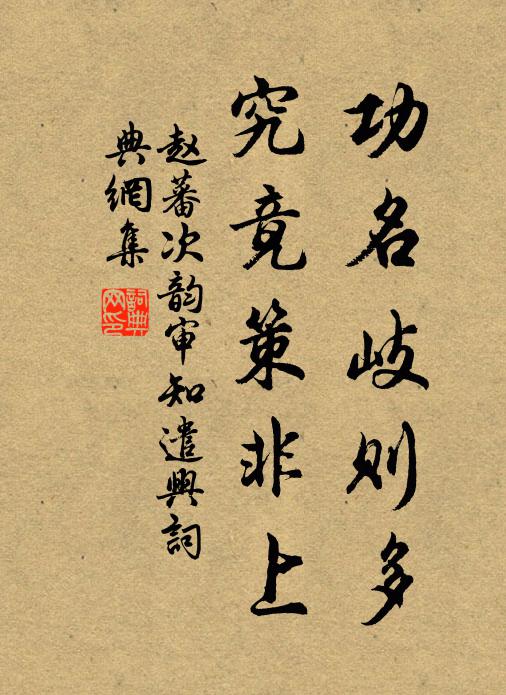 功名岐则多
究竟策非上
赵蕃次韵审知遣兴詞
典網集
詞典
网印